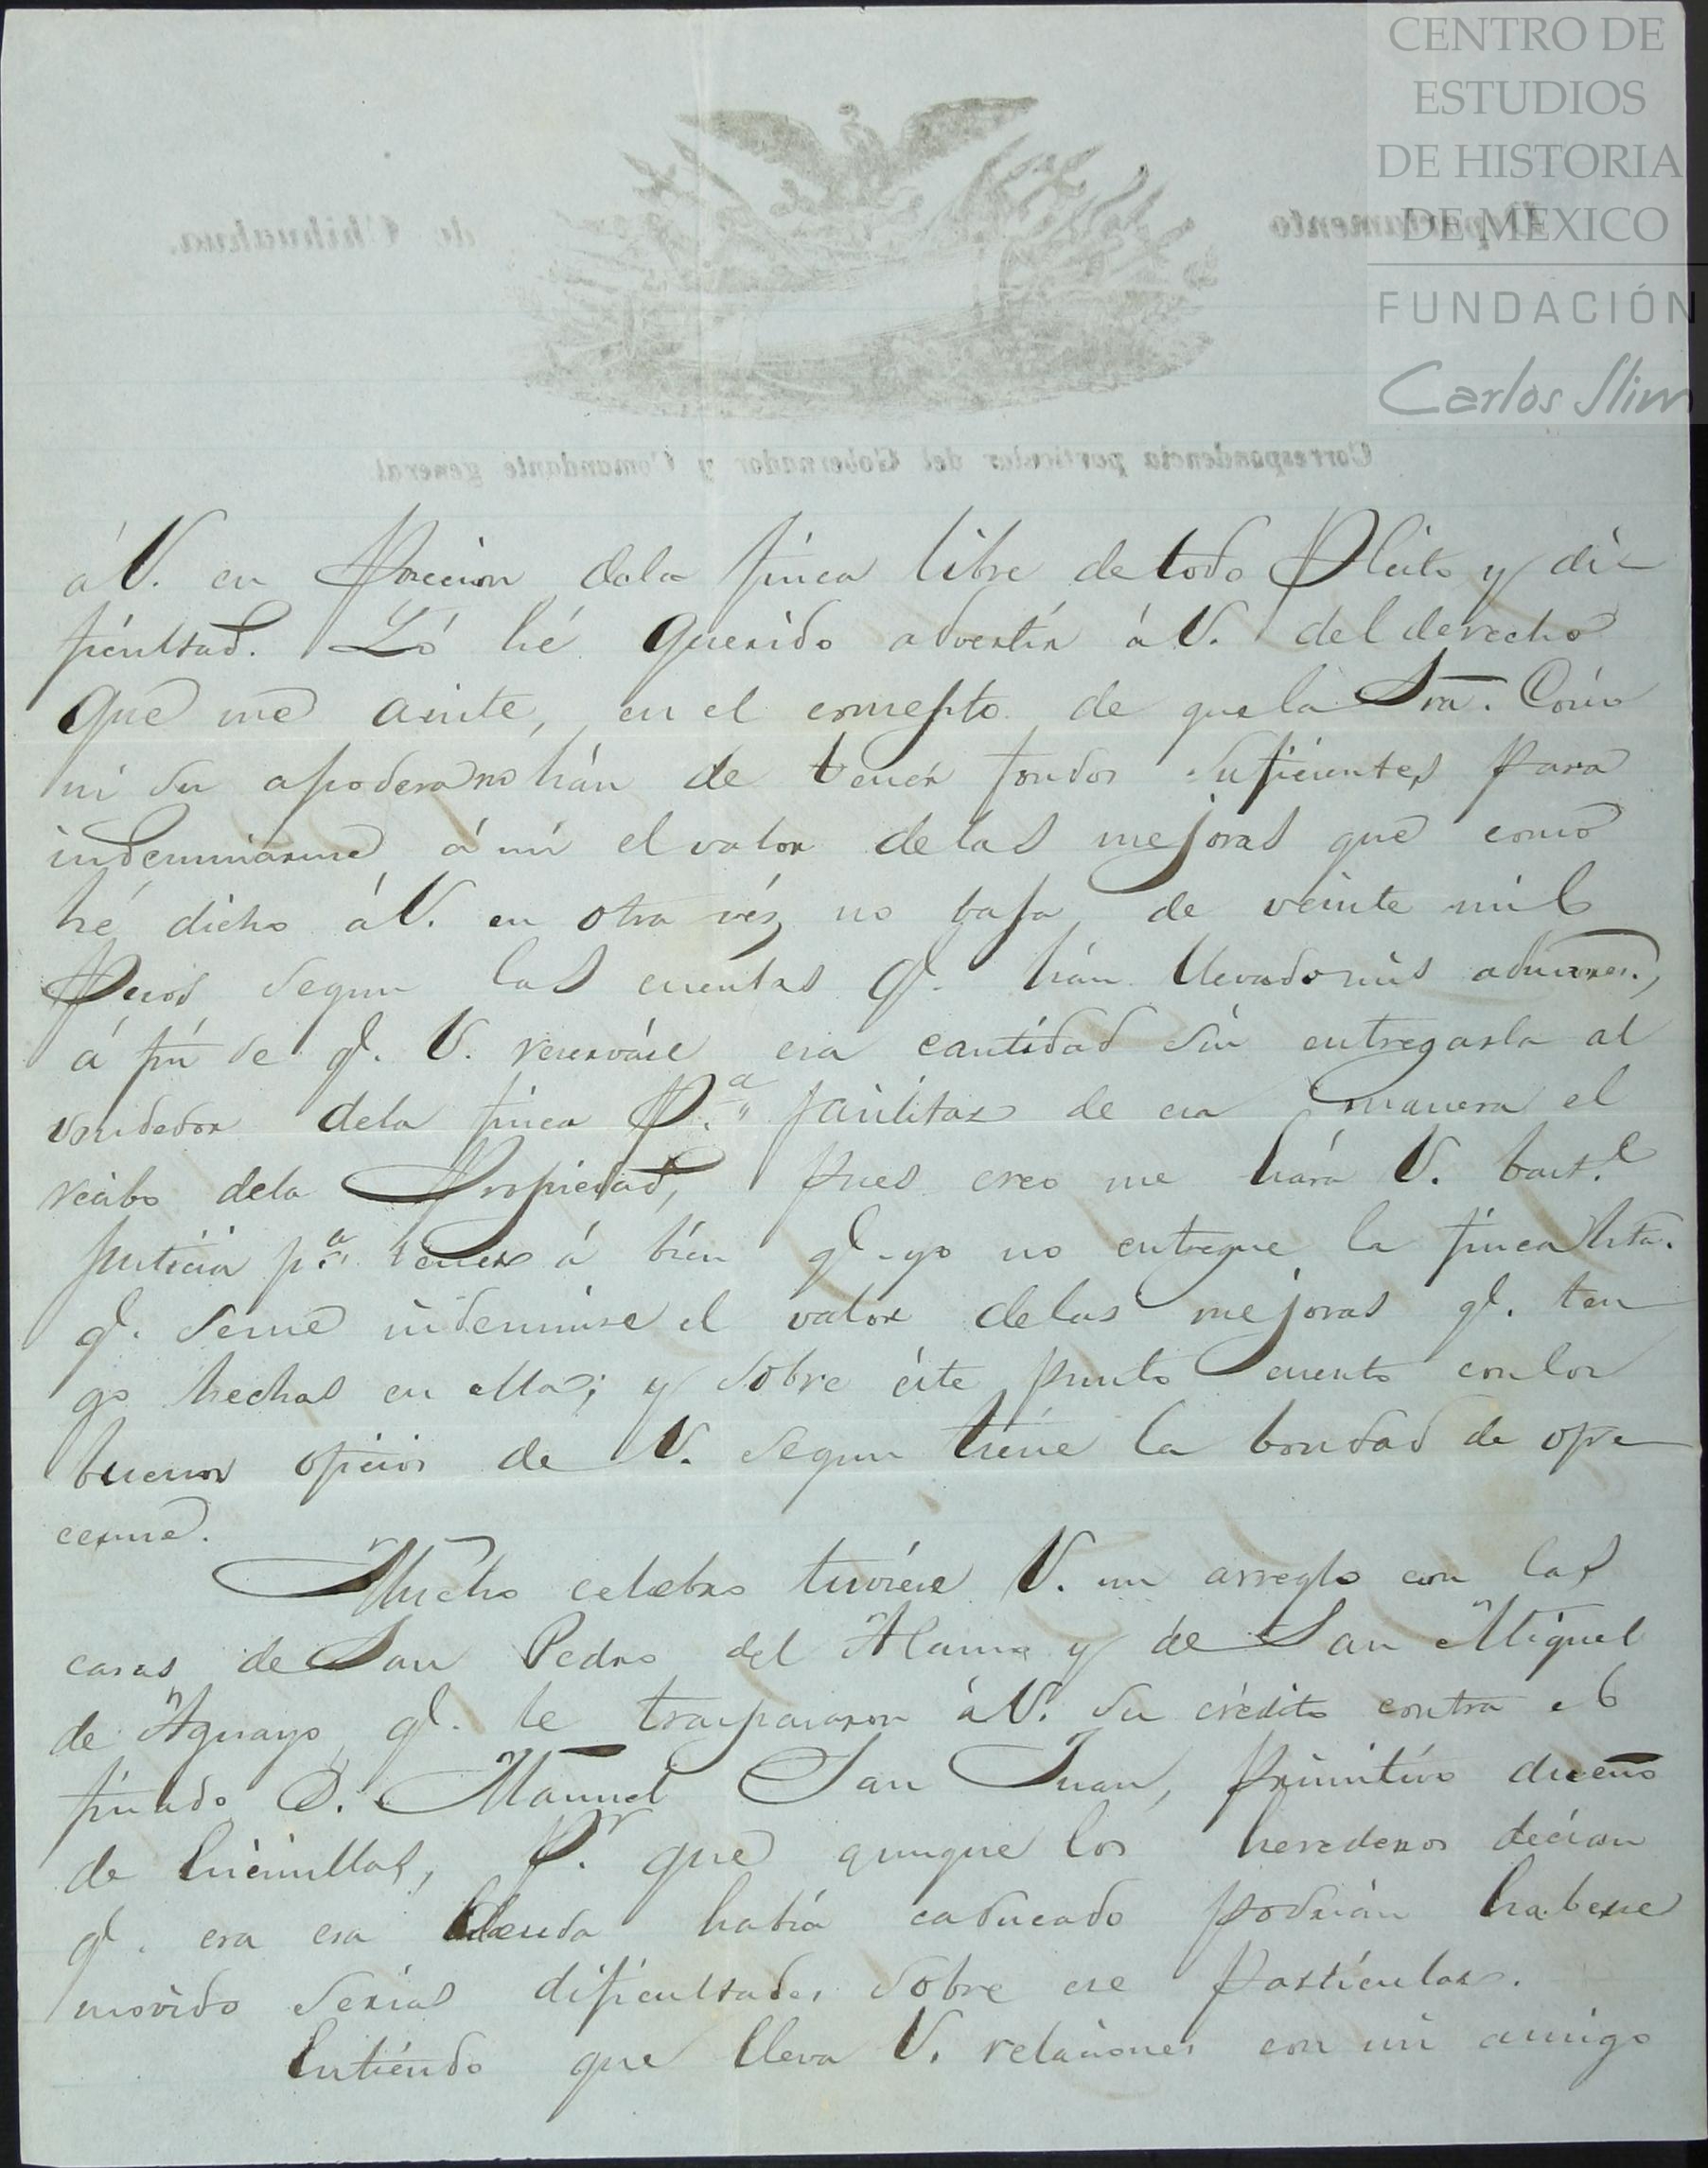 CENTRO DE
ESTUDIOS
DE HISTORIA
DE MÉXICO
FUNDACIÓN
Carlos Slim
Departamento de Chihuahua.
Correspondencia particular del Gobernador y Comandante general
á V. en Posecion dela finca libre de todo Pleito y di-
ficultad. Ló hé querido advertir á V. del derecho
que me asiste, en el concepto de que la Sra. Cosio
ni su apodera no hán de tenér fondos suficientes para
indemnisarme á mí el valor de las mejoras que como
hé dicho á V. en otra véz no baja de veinte mil
Pesos segun las cuentas q. hán llevado mis admores.,
á fin de q. V. reserváse esa cantidad sin entregarla al
vendedor dela finca P.ª facilitar de esa manera el
recibo dela Propiedad, pues creo me hará V. bast.e
justicia p.ª tener á bien q. yo no entregue la finca hta.
q. seme indemnise el valor delas mejoras q. ten-
go hechas en ella; y sobre éste punto cuento conlos
buenos oficios de V. segun tiene la bondad de ofre-
cerme.
Mucho celebro tuviése V. un arreglo con las
casas de San Pedro del Alamo y de San Miguel
de Aguayo, q. le traspasaron á V. su crédito contra el
finado D. Manuel San Juan, primitivo dueño
de Encinillas, P.r que aunque los herederos decian
q. esa deuda había caducado podrían haberse
movido serias dificultades sobre ese particular.
Entiendo que lleva V. relaciones con mi amigo